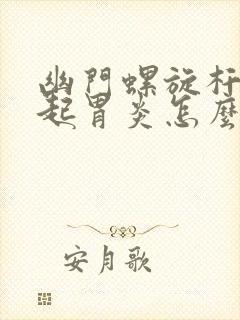 幽門螺旋杆
起胃炎怎麼
安月歌